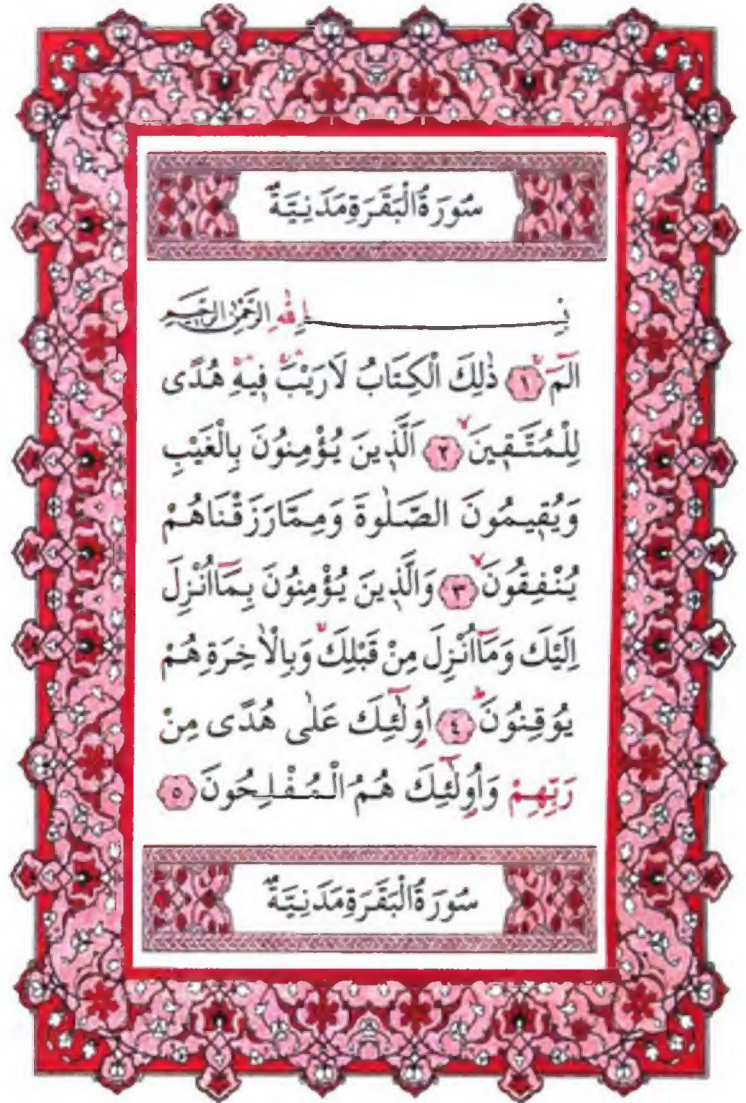 سُورَةُ الْبَقَرَةِ مَدَنِيَّةٌ
بِسْــــــــمِ اللهِ الرَّحْمٰنِ الرَّحِيمِ
الٓمٓ ﴿١﴾ ذٰلِكَ الْكِتَابُ لَا رَيْبَ فِيهِ هُدًى
لِلْمُتَّقِينَ ﴿٢﴾ اَلَّذِينَ يُؤْمِنُونَ بِالْغَيْبِ
وَيُقِيمُونَ الصَّلٰوةَ وَمِمَّا رَزَقْنَاهُمْ
يُنْفِقُونَ ﴿٣﴾ وَالَّذِينَ يُؤْمِنُونَ بِمَٓا اُنْزِلَ
اِلَيْكَ وَمَٓا اُنْزِلَ مِنْ قَبْلِكَ وَبِالْاٰخِرَةِ هُمْ
يُوقِنُونَ ﴿٤﴾ اُولٰٓئِكَ عَلٰى هُدًى مِنْ
رَبِّهِمْ وَاُولٰٓئِكَ هُمُ الْمُفْلِحُونَ ﴿٥﴾
سُورَةُ الْبَقَرَةِ مَدَنِيَّةٌ